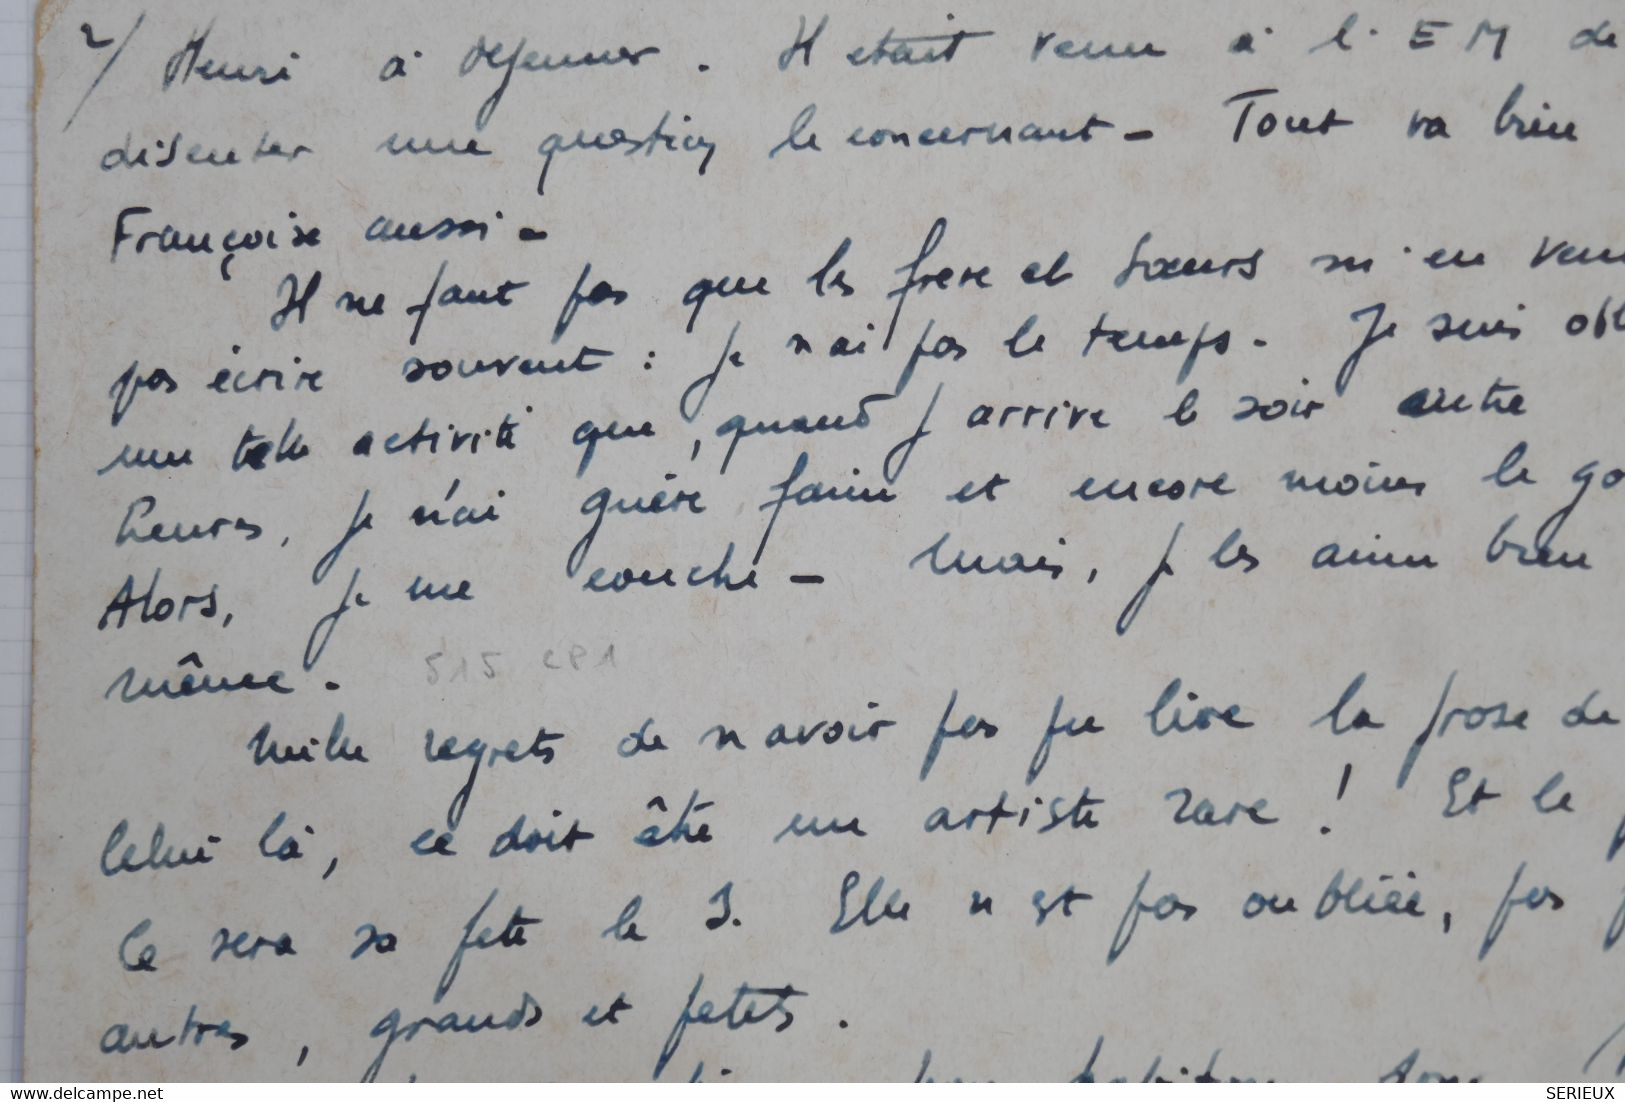 2/ Henri à déjeuner. Il etait venu à l'EM de
discuter une question le concernant - Tout va bien
Françoise aussi -
Il ne faut pas que les frere et soeurs m'en veu
pas écrire souvent : je n'ai pas le temps. Je suis obl
une telle activité que, quand j'arrive le soir entre
heures, je n'ai guère faim et encore moins le go
Alors, je me couche - Mais, je les aime bien
même.
515 CP1
Mille regrets de n'avoir pas pu lire la prose de
Celui là, ce doit être un artiste rare ! Et le
Ce sera sa fete le 3. Elle n'est pas oubliée, pas
autres, grands et petits.
SERIEUX